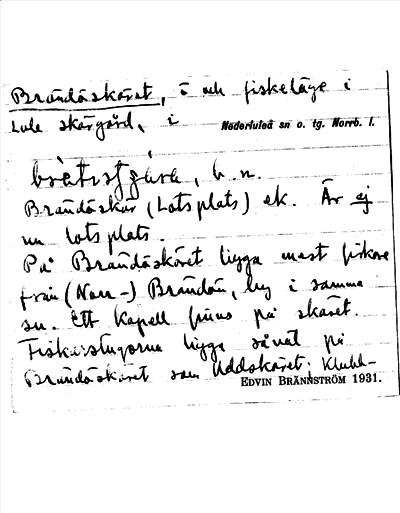 Brändöskäret, ö och fiskeläge i
Lule skärgård, i Nederluleå sn o. tg. Norrb. l.
b.n.
Brändöskär (Lotsplats) ek. Är ej
nu lotsplats.
På Brändöskäret ligga mest fiskare
från (Norr-) Brändön, by i samma
sn. Ett kapell finns på skäret.
Fiskarstugorna ligga såväl på
Brändöskäret som Uddskäret; Klubb-
EDVIN BRÄNNSTRÖM 1931.